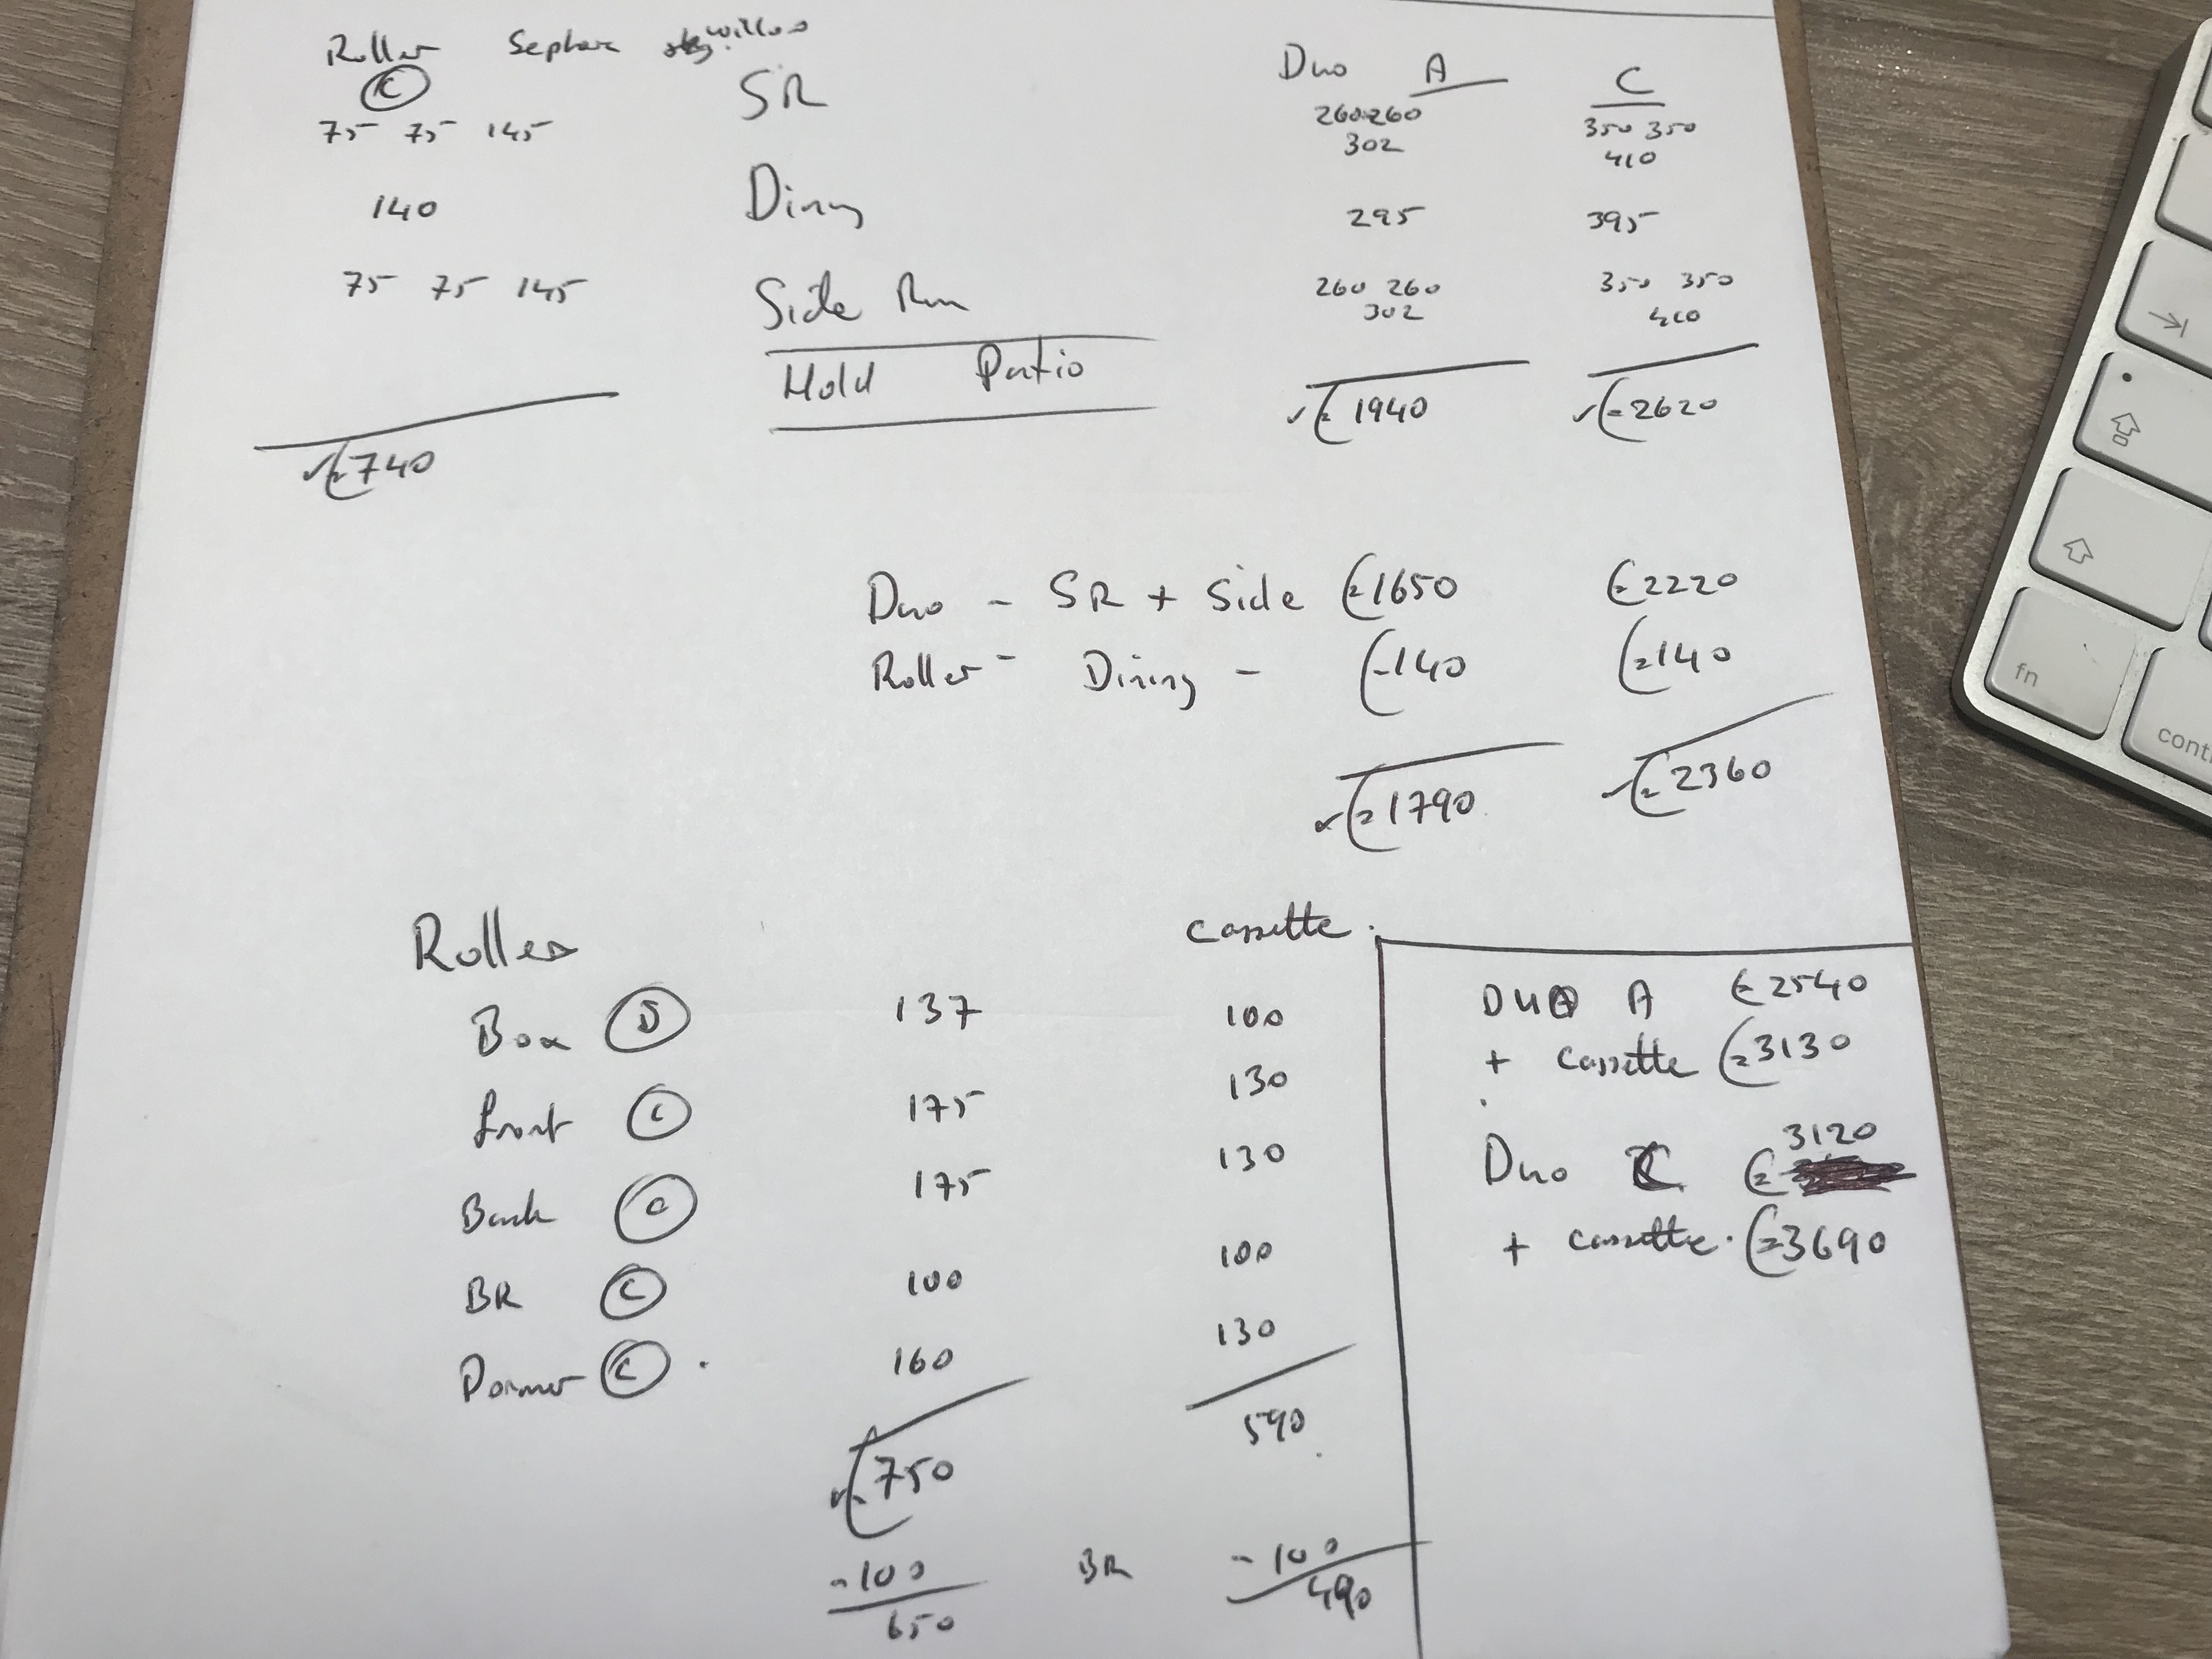 Roller Sephora willow
C
75 75 145 SR
140 Dining
75 75 145 Side Run
Hold Patio
€740
Duo A C
260 260 350 350
302 410
295 395
260 260 350 350
302 410
€1940 €2620
Duo - SR + Side €1650 €2220
Roller - Dining - €140 €140
€1790 €2360
Roller Cassette.
Box D 137 100
front C 175 130
Back C 175 130
BR C 100 100
Dormer C . 160 130
€750 590
-100 BR -100
650 490
DUO A €2540
+ Cassette €3130
Duo C €3120
+ cassette. €3690
fn
cont